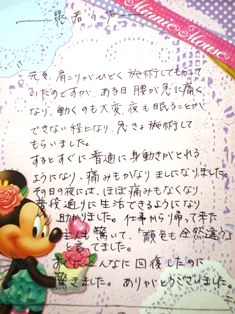 Minnie Mouse
患者の声
元々、肩こりがひどく施術してもらって
いたのですが、ある日腰が急に痛く
なり、動くのも大変、夜も眠ることが
できない程になり、急きょ施術して
もらいました。
するとすぐに普通に身動きがとれる
ようになり、痛みもかなりましになりました。
その日の夜には、ほぼ痛みもなくなり、
普段通りに生活できるようになり
助かりました。仕事から帰って来た
主人も驚いて、「顔色も全然違う」
と言ってました。
こんなに回復したのに
驚きました。ありがとうございました。